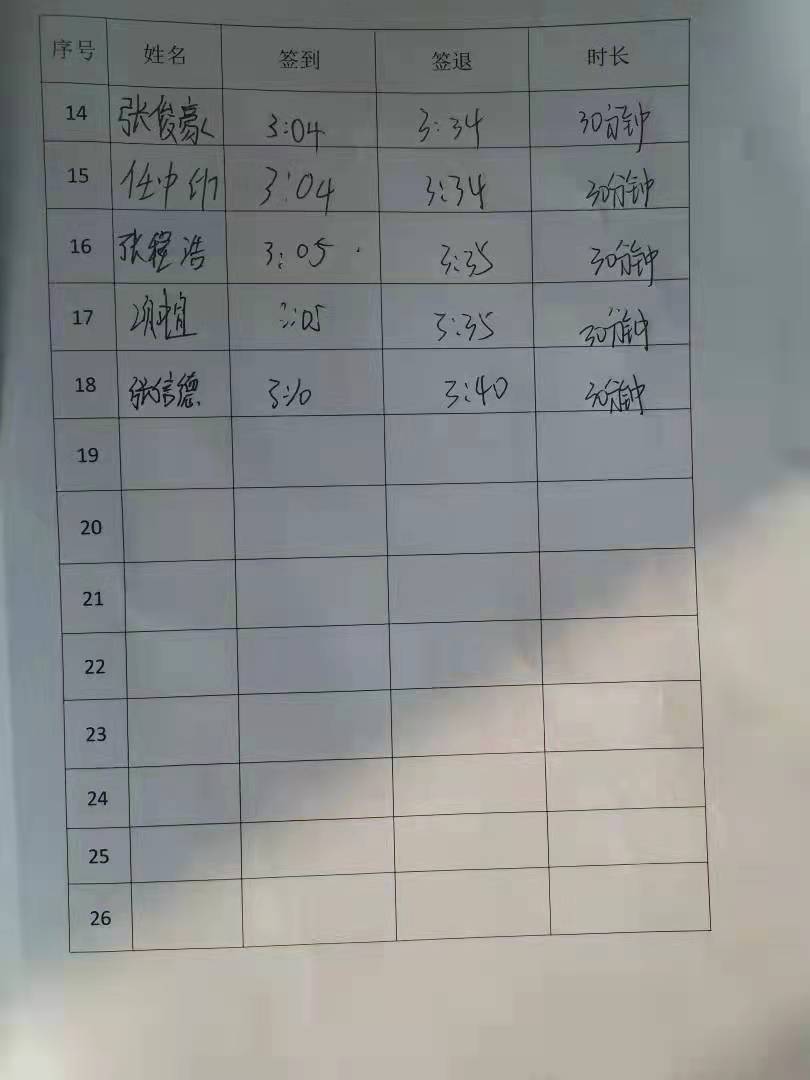 序号 姓名 签到 签退 时长
14 张俊豪 3:04 3:34 30分钟
15 任中 3:04 3:34 30分钟
16 张程浩 3:05 3:35 30分钟
17 3:05 3:35 30分钟
18 张信德 3:10 3:40 30分钟
19
20
21
22
23
24
25
26